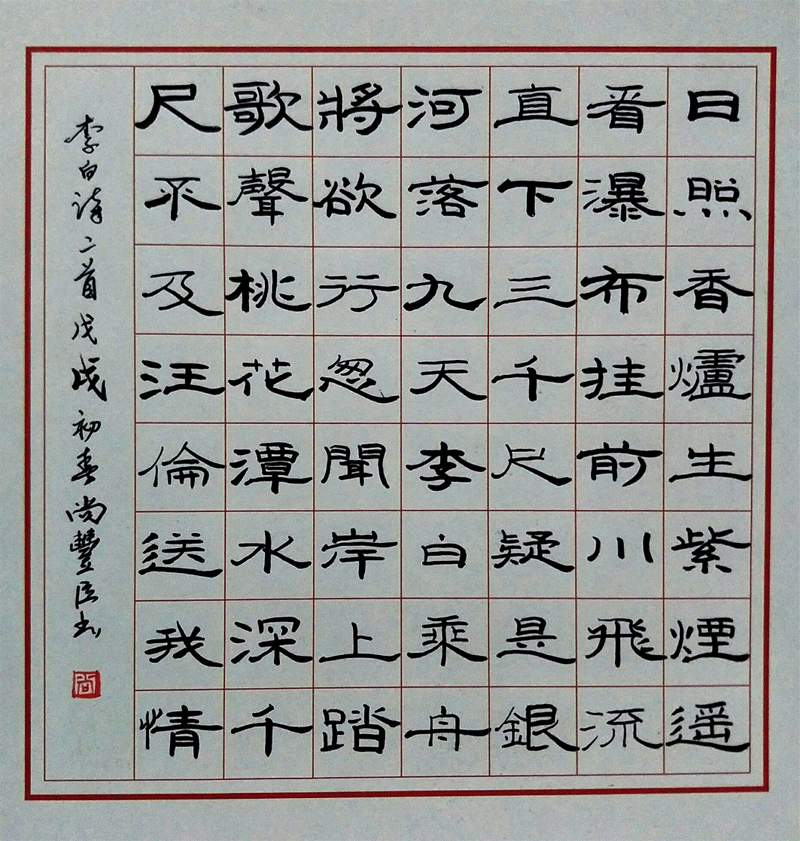 日照香爐生紫煙遥
看瀑布挂前川飛流
直下三千尺疑是銀
河落九天李白乘舟
將欲行忽聞岸上踏
歌聲桃花潭水深千
尺不及汪倫送我情
李白詩二首戊戌初春尚豐臣书
尚